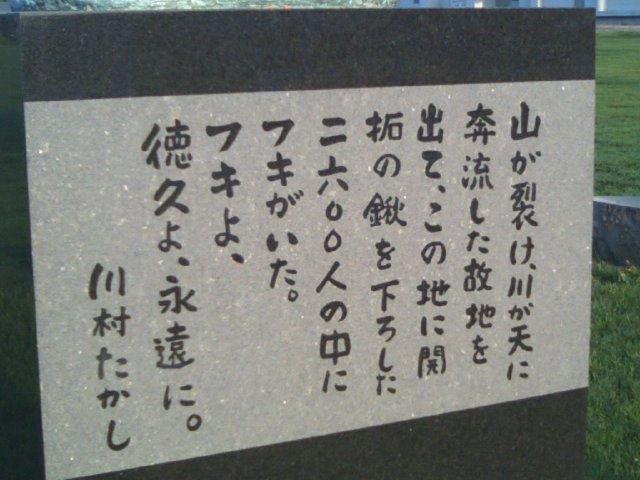 山が裂け、川が天に
奔流した故地を
出て、この地に開
拓の鍬を下ろした
二六〇〇人の中に
フキがいた。
フキよ、
徳久よ、永遠に。
川村たかし